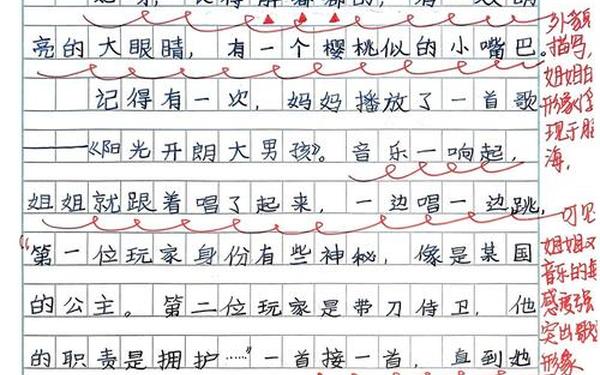 亮的大眼睛，有一个樱桃似的小嘴巴。
记得有一次，妈妈播放了一首歌
——《阳光开朗大男孩》。音乐一响起，
姐姐就跟着唱了起来，一边唱一边跳，
“第一位玩家身份有些神秘，像是某国
的公主。第二位玩家是带刀侍卫，他
的职责是拥护……”一首接一首，直到她
外貌
描写，
姐姐的
形象
现于脑
海，
可见
姐姐对
音乐的
感
突出
形象